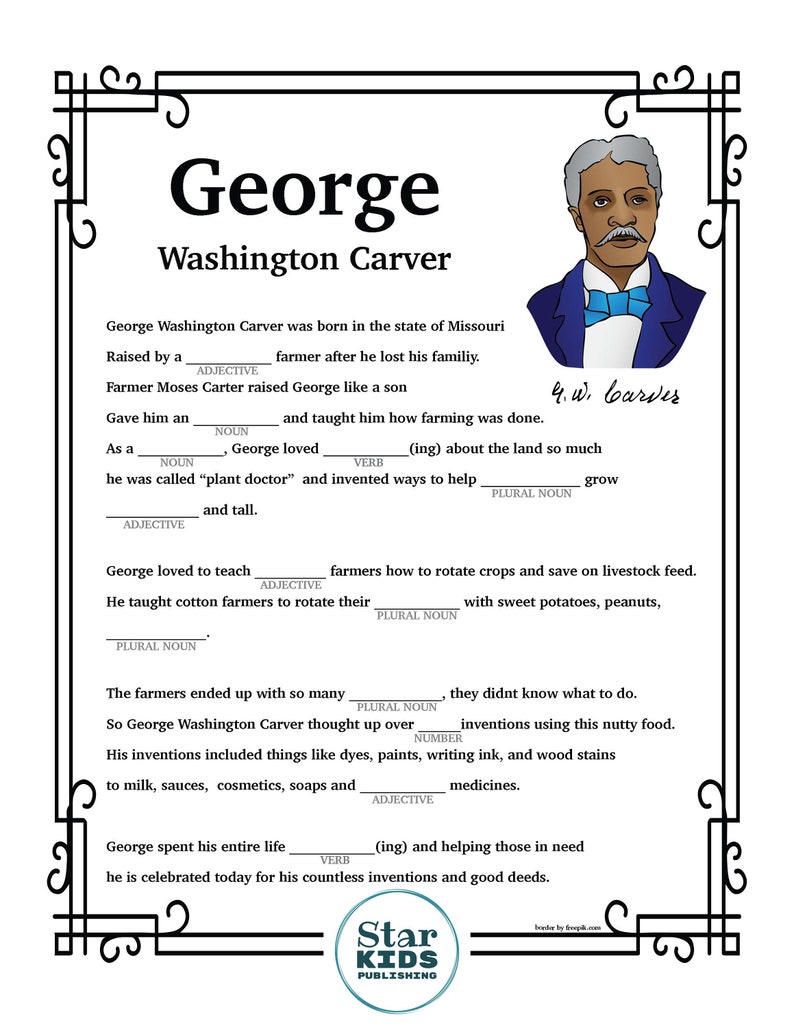 George
Washington Carver
G. W. Carver
George Washington Carver was born in the state of Missouri
Raised by a ____________ farmer after he lost his familiy.
ADJECTIVE
Farmer Moses Carter raised George like a son
Gave him an ____________ and taught him how farming was done.
NOUN
As a ____________, George loved ____________(ing) about the land so much
NOUN VERB
he was called “plant doctor” and invented ways to help ______________ grow
PLURAL NOUN
_____________ and tall.
ADJECTIVE
George loved to teach __________ farmers how to rotate crops and save on livestock feed.
ADJECTIVE
He taught cotton farmers to rotate their ____________ with sweet potatoes, peanuts,
PLURAL NOUN
______________.
PLURAL NOUN
The farmers ended up with so many _____________, they didnt know what to do.
PLURAL NOUN
So George Washington Carver thought up over ______inventions using this nutty food.
NUMBER
His inventions included things like dyes, paints, writing ink, and wood stains
to milk, sauces, cosmetics, soaps and ____________ medicines.
ADJECTIVE
George spent his entire life ____________(ing) and helping those in need
VERB
he is celebrated today for his countless inventions and good deeds.
border by freepik.com
Star
KIDS
PUBLISHING